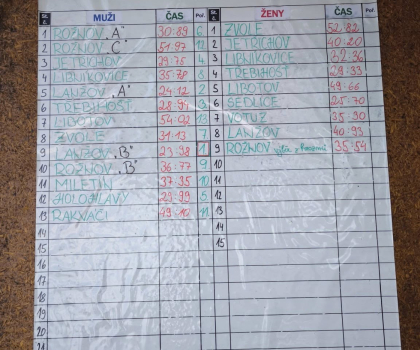 St. č. MUŽI ČAS Poř. St. č. ŽENY ČAS Poř.
1 ROŽNOV „A" 30:89 6 1 ZVOLE 52:82
2 ROŽNOV „C" 51:97 12 2 JETŘICHOV 40:20
3 JETŘICHOV 29:75 4 3 LIBNÍKOVICE 32:36
4 LIBNÍKOVICE 35:78 8 4 TŘEBIHOŠŤ 29:33
5 LANŽOV „A" 24:12 2 5 LIBOTOV 49:66
6 TŘEBIHOŠŤ 28:95 3 6 SEDLICE 25:70
7 LIBOTOV 54:02 13 7 VOTUZ 35:90
8 ZVOLE 31:13 7 8 LANŽOV 40:93
9 LANŽOV „B" 23:98 1 9 ROŽNOV 35:54
10 ROŽNOV „B" 36:77 9 10
11 MILETÍN 37:35 10 11
12 HOLOHLAVY 29:99 5 12
13 RAKVÁČI 49:10 11 13
14 14
15 15
16
17
18
19
20
21